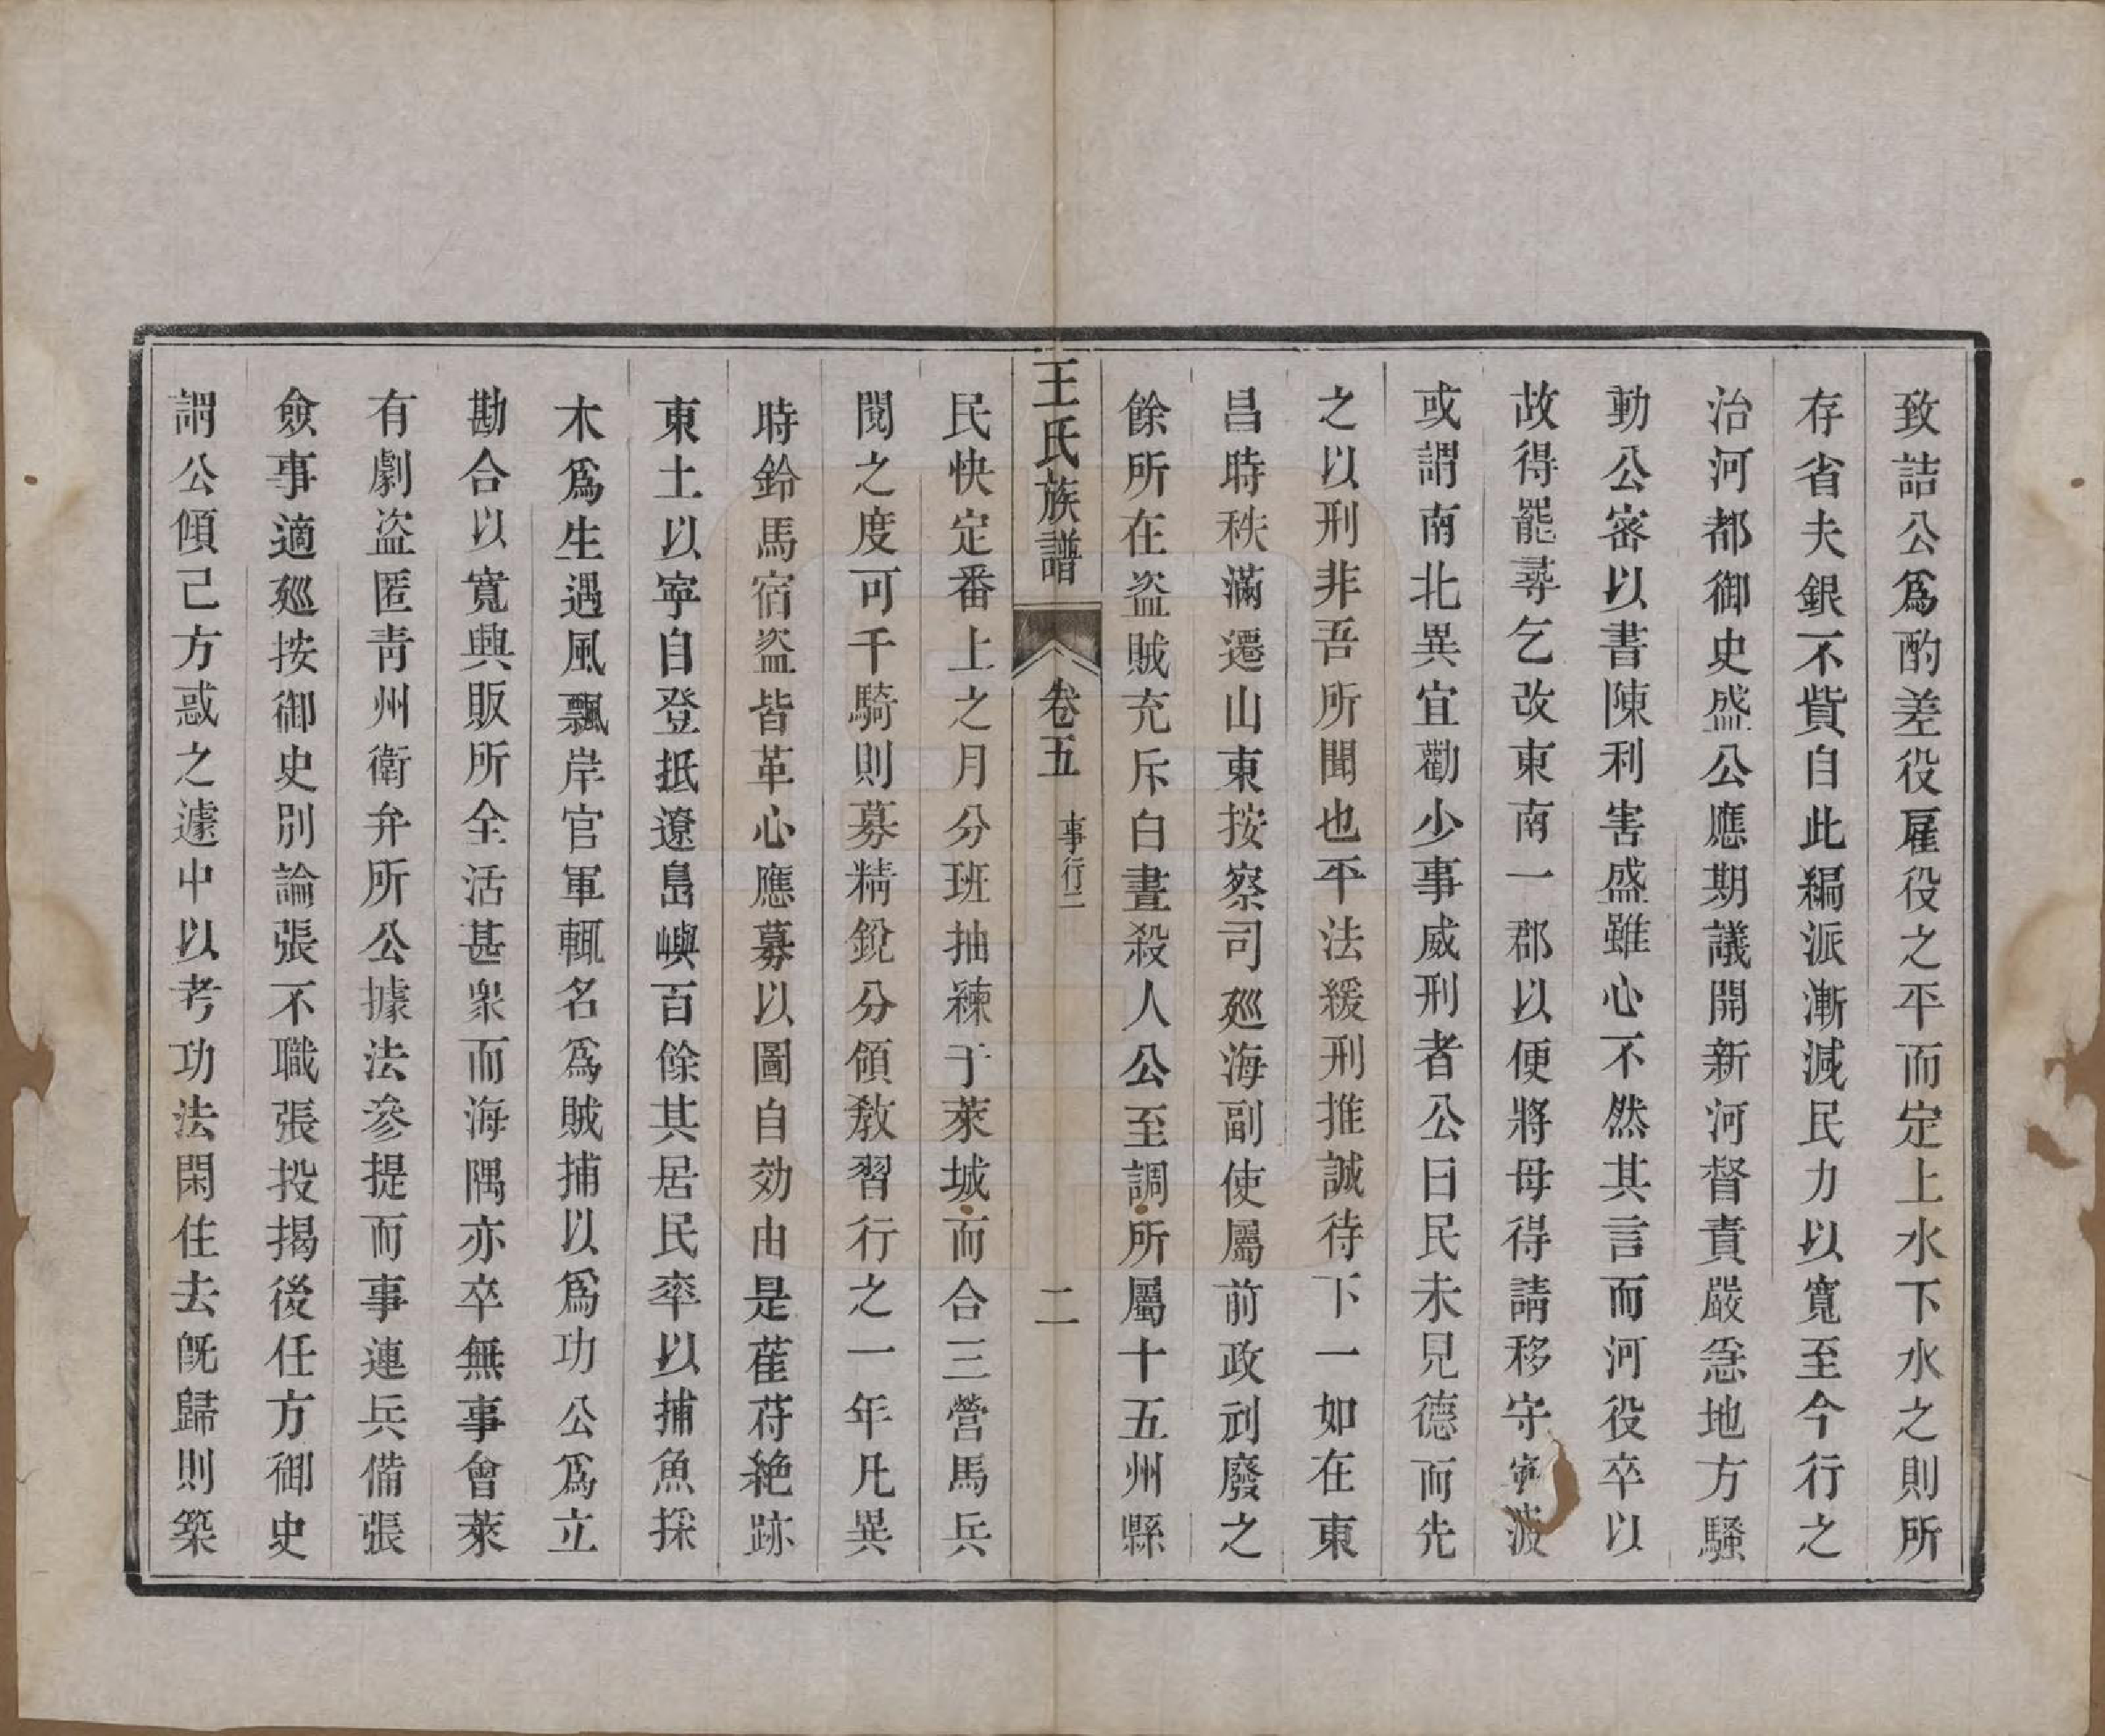 致詰公爲酌差役雇役之平而定上水下水之則所
存省夫銀不貲自此編派漸減民力以寬至今行之
治河都御史盛公應期議開新河督責嚴急地方騷
動公密以書陳利害盛雖心不然其言而河役卒以
故得罷尋乞改東南一郡以便將母得請移守寧波
或謂南北異宜勸少事威刑者公曰民未見德而先
之以刑非吾所聞也平法緩刑推誠待下一如在東
昌時秩滿遷山東按察司廵海副使屬前政刓廢之
餘所在盜賊充斥白晝殺人公至調所屬十五州縣
王氏族譜 卷五 事行二 二
民快定番上之月分班抽練于萊城而合三營馬兵
閱之度可千騎則募精銳分領教習行之一年凡異
時鈴馬宿盜皆革心應募以圖自効由是萑苻絶跡
東土以寧自登抵遼島嶼百餘其居民率以捕魚採
木爲生遇風飄岸官軍輒名爲賊捕以爲功公爲立
勘合以寬興販所全活甚衆而海隅亦卒無事會萊
有劇盜匿青州衛弁所公據法參提而事連兵備張
僉事適廵按御史別論張不職張投揭後任方御史
謂公傾己方惑之遽中以考功法閑住去旣歸則築